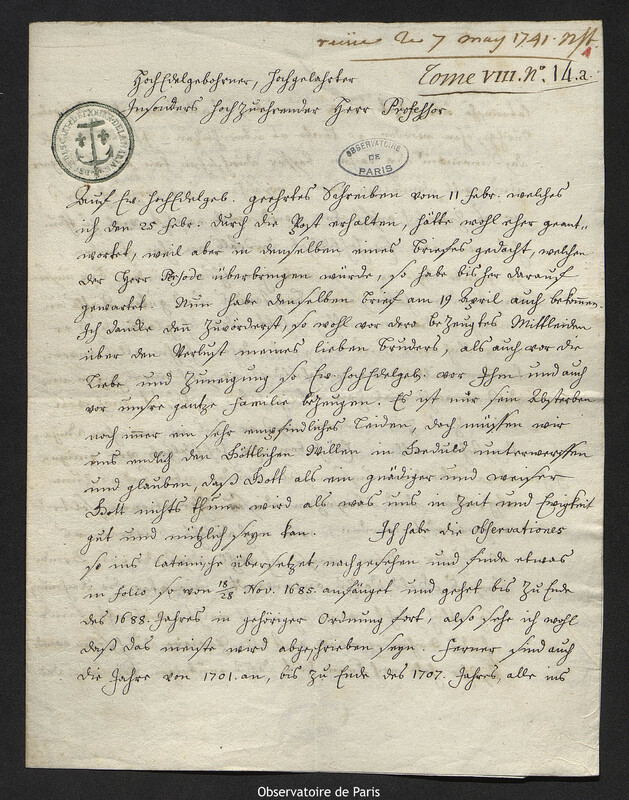 reçüe le 7 may 1741. nst.
Tome VIII. N.º 14.a.
HochEdelgebohrner, Hochgelahrter
Insonders Hochzuehrender Herr Professor
OBSERVATOIRE
DE
PARIS
Auf Ew. HochEdelgeb. geehrtes Schreiben vom 11 Febr. welches
ich den 25 Febr. durch die Post erhalten, hätte wohl eher geant-
wortet, weil aber in demselben eines Briefes gedacht, welchen
der Herr überbringen würde, so habe bisher darauf
gewartet. Nun habe denselben Brief am 19 April auch bekommen.
Ich dancke denn zuvörderst, so wohl vor dero bezeugtes Mittleiden
über den Verlust meines lieben Bruders, als auch vor die
Liebe und Zuneigung so Ew. HochEdelgeb. vor Ihm und auch
vor unsre gantze Familie bezeugen. Es ist nur sein Absterben
noch im̄er ein sehr empfindliches Leiden, doch müssen wir
uns endlich den Göttlichen Willen in Geduld unterwerffen
und glauben, daß Gott als ein gnädiger und weiser
Gott nichts thuen wird als was uns in Zeit und Ewigkeit
gut und nützlich seyn kan. Ich habe die Observationes
so ins lateinsche übersetzet, nachgesehen und finde etwas
in folio so von 18/28 Nov. 1685. anfänget und gehet bis zu Ende
des 1688. Jahres in gehöriger Ordnung fort, also sehe ich wohl
daß das meiste wird abgeschrieben seyn. Ferner sind auch
die Jahre von 1701. an, bis zu Ende des 1707. Jahres, alle ins
Observatoire de Paris